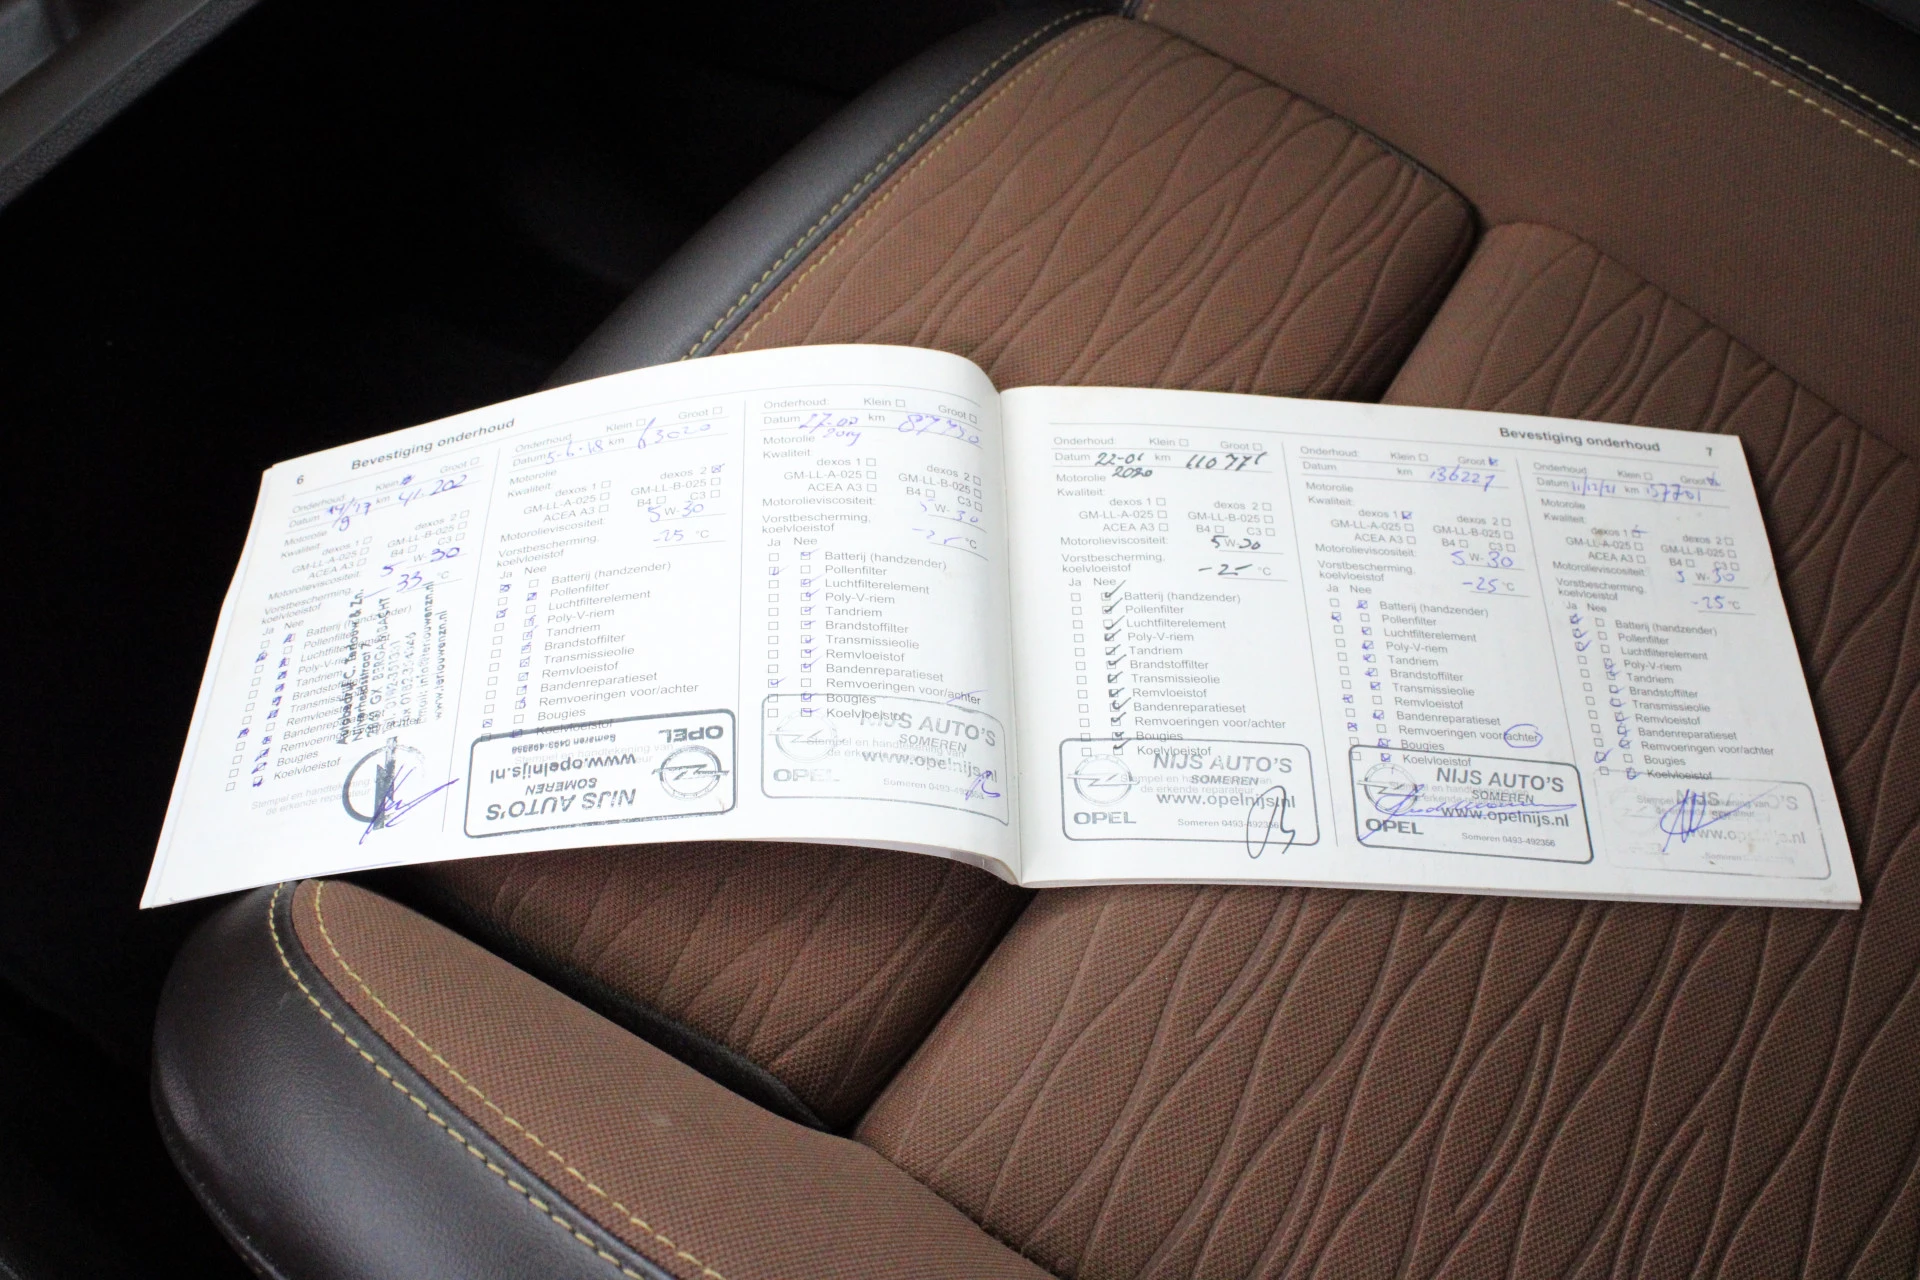 6 Bevestiging onderhoud
Onderhoud: Klein Groot
Datum km 41.202
Motorolie
Kwaliteit: dexos 1 dexos 2
GM-LL-A-025 GM-LL-B-025
ACEA A3 B4 C3
Motorolieviscositeit: 5 W- 30
Vorstbescherming,
koelvloeistof 33 °C
Ja Nee
Batterij (handzender)
Pollenfilter
Poly-V-riem
Tandriem
Bougies
Koelvloeistof
Onderhoud: Klein Groot
Datum 5-6-18 km 63020
Motorolie
Kwaliteit: dexos 1 dexos 2
GM-LL-A-025 GM-LL-B-025
ACEA A3 B4 C3
Motorolieviscositeit: 5 W- 30
Vorstbescherming,
koelvloeistof -25 °C
Ja Nee
Batterij (handzender)
Pollenfilter
Luchtfilterelement
Poly-V-riem
Tandriem
Brandstoffilter
Transmissieolie
Remvloeistof
Bandenreparatieset
Remvoeringen voor/achter
Bougies
Koelvloeistof
NIJS AUTO'S
SOMEREN
www.opelnijs.nl
Someren 0493-492356
OPEL
Onderhoud: Klein Groot
Datum km
Motorolie 2019
Kwaliteit dexos 1 dexos 2
GM-LL-A-025 GM-LL-B-025
ACEA A3 B4 C3
Motorolieviscositeit: 5 W- 30
Vorstbescherming,
koelvloeistof °C
Ja Nee
Batterij (handzender)
Pollenfilter
Luchtfilterelement
Poly-V-riem
Tandriem
Brandstoffilter
Transmissieolie
Remvloeistof
Bandenreparatieset
Remvoeringen voor/achter
Bougies
Koelvloeistof
NIJS AUTO'S
SOMEREN
www.opelnijs.nl
OPEL Someren 0493-492356
Bevestiging onderhoud 7
Onderhoud: Klein Groot
Datum 22-01 km 110771
Motorolie 2020
Kwaliteit:
dexos 1 dexos 2
GM-LL-A-025 GM-LL-B-025
ACEA A3 B4 C3
Motorolieviscositeit: 5 W- 30
Vorstbescherming,
koelvloeistof -25 °C
Ja Nee
Batterij (handzender)
Pollenfilter
Luchtfilterelement
Poly-V-riem
Tandriem
Brandstoffilter
Transmissieolie
Remvloeistof
Bandenreparatieset
Remvoeringen voor/achter
Bougies
Koelvloeistof
NIJS AUTO'S
SOMEREN
www.opelnijs.nl
OPEL Someren 0493-492356
Onderhoud: Klein Groot
Datum km 136227
Motorolie
Kwaliteit:
dexos 1 dexos 2
GM-LL-A-025 GM-LL-B-025
ACEA A3 B4 C3
Motorolieviscositeit: 5 W- 30
Vorstbescherming,
koelvloeistof -25 °C
Ja Nee
Batterij (handzender)
Pollenfilter
Luchtfilterelement
Poly-V-riem
Tandriem
Brandstoffilter
Transmissieolie
Remvloeistof
Bandenreparatieset
Remvoeringen voor/achter
Bougies
Koelvloeistof
NIJS AUTO'S
SOMEREN
www.opelnijs.nl
OPEL Someren 0493-492356
Onderhoud: Klein Groot
Datum 11/12/21 km 157701
Motorolie
Kwaliteit:
dexos 1 dexos 2
GM-LL-A-025 GM-LL-B-025
ACEA A3 B4 C3
Motorolieviscositeit: 5 W- 30
Vorstbescherming,
koelvloeistof -25 °C
Ja Nee
Batterij (handzender)
Pollenfilter
Luchtfilterelement
Poly-V-riem
Tandriem
Brandstoffilter
Transmissieolie
Remvloeistof
Bandenreparatieset
Remvoeringen voor/achter
Bougies
Koelvloeistof
www.opelnijs.nl